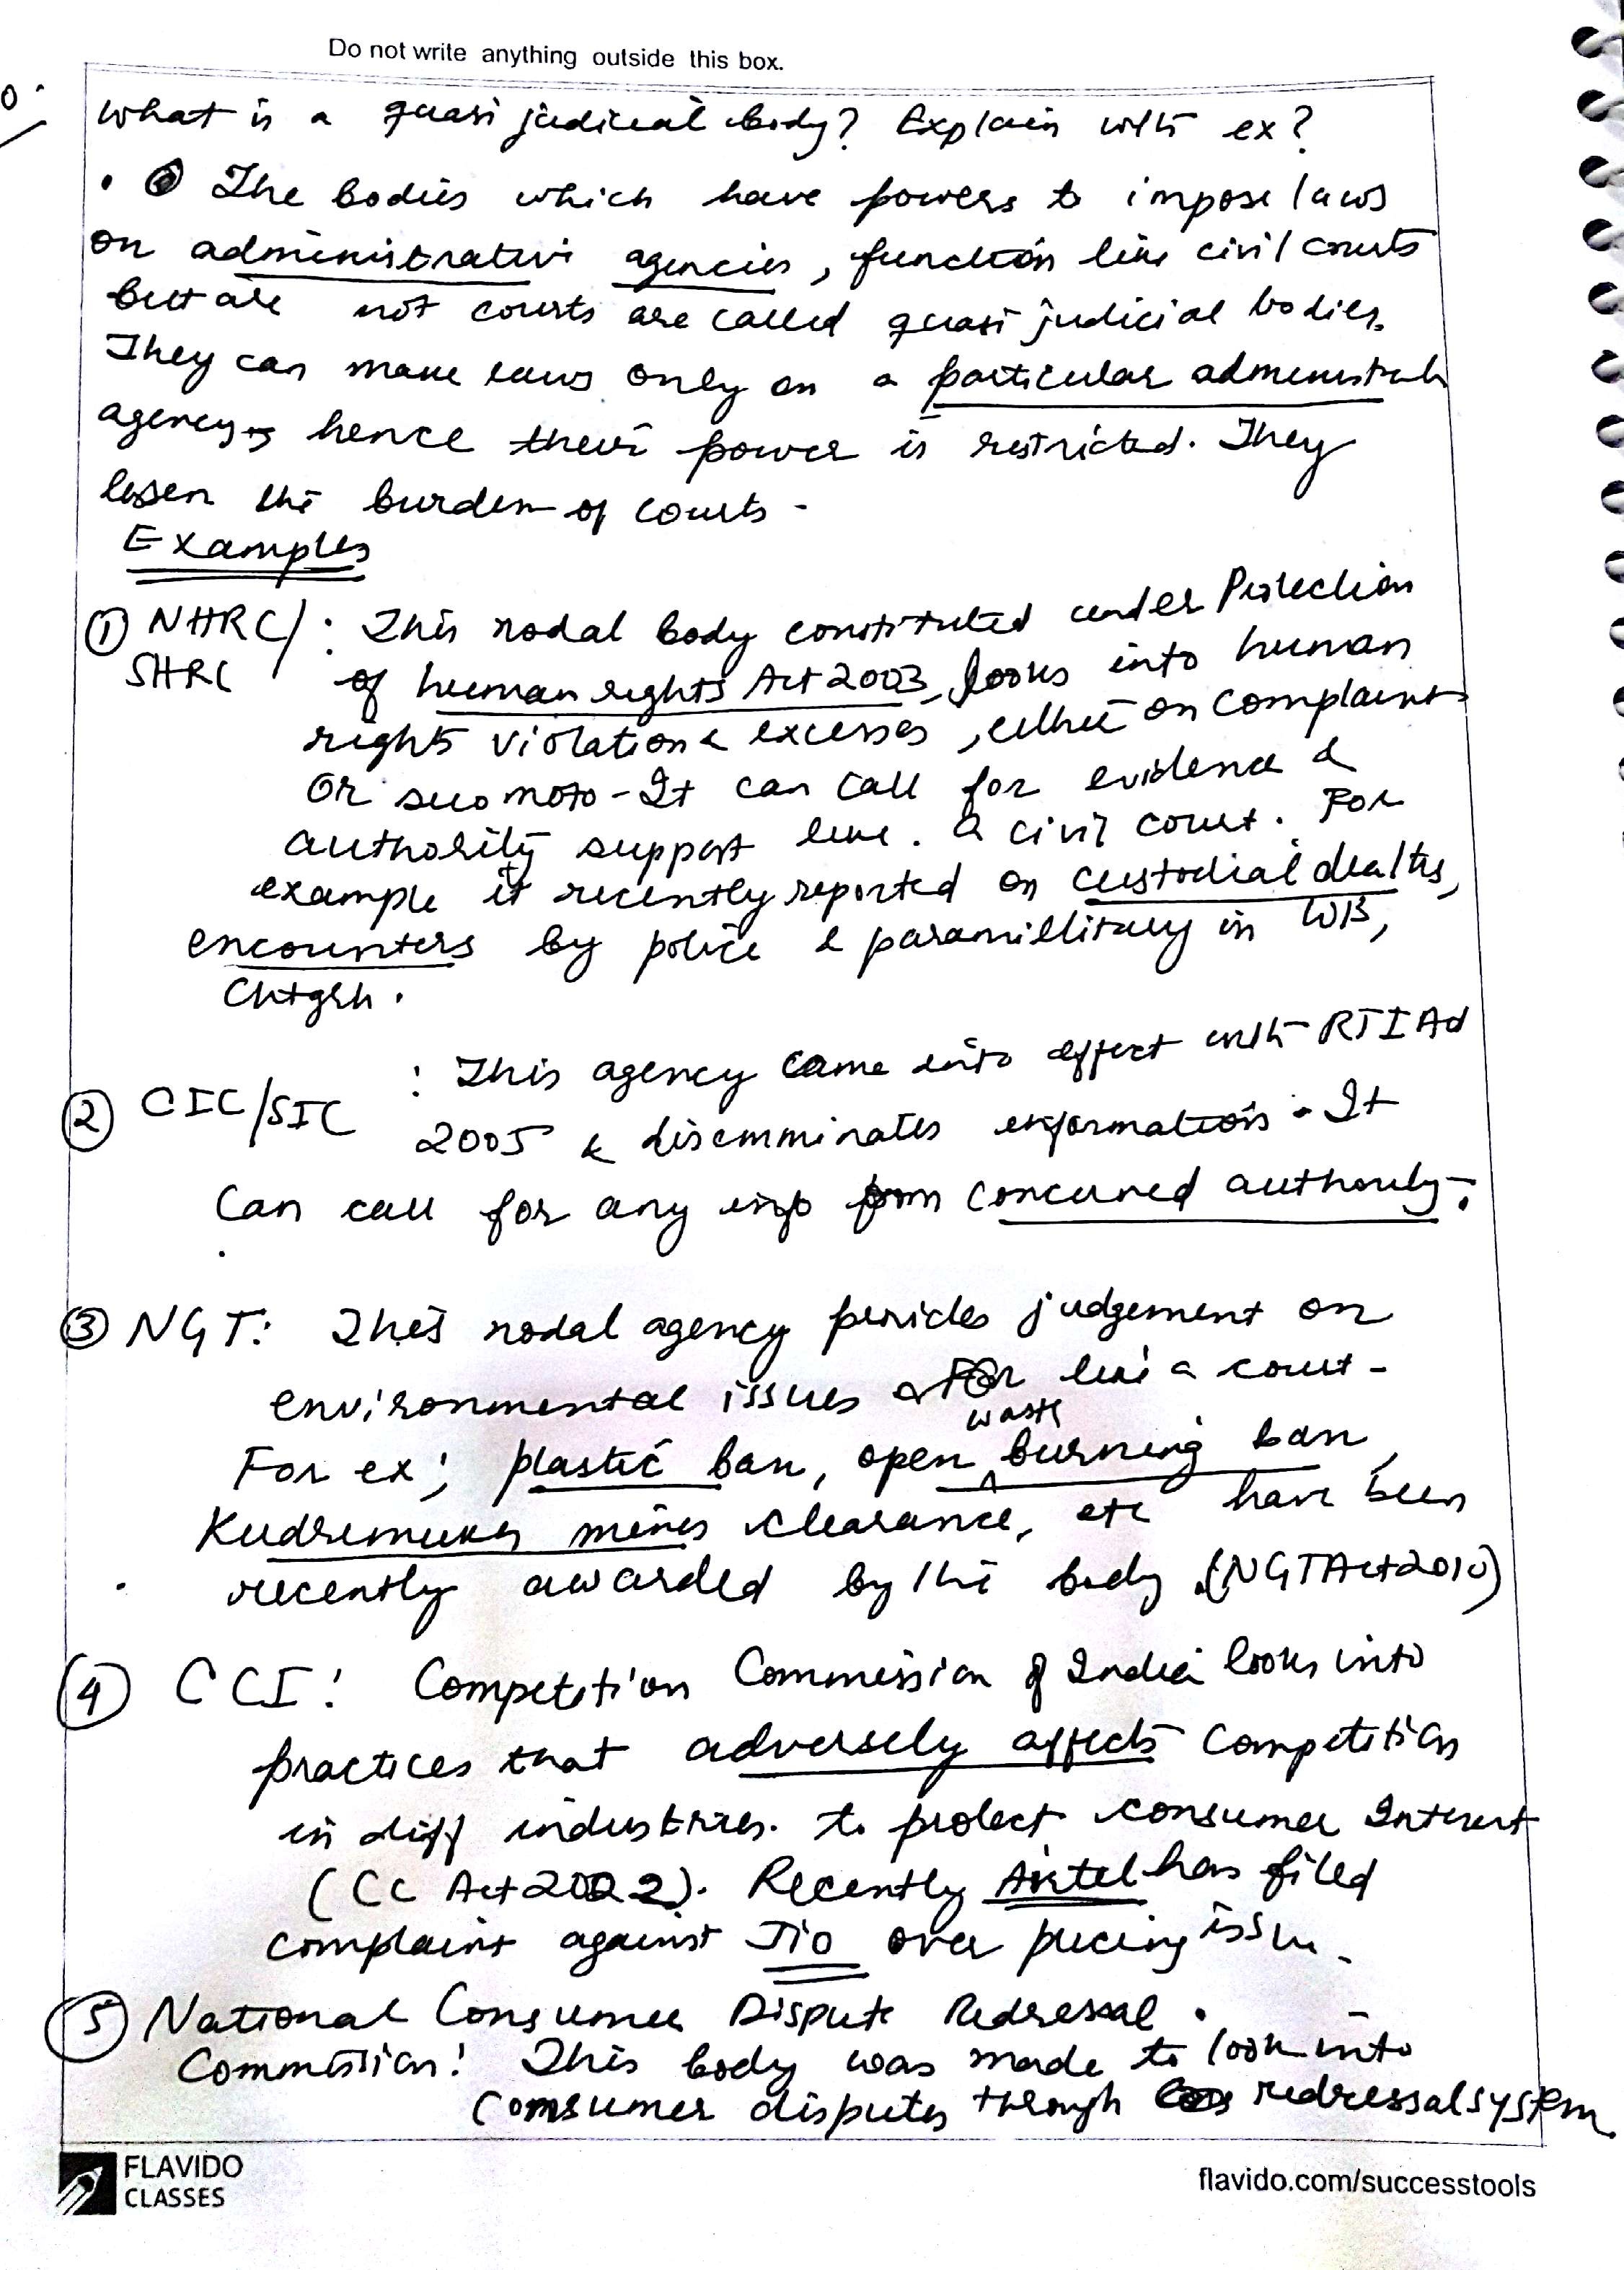 Do not write anything outside this box.
What is a quasi judicial body? Explain with ex?
The bodies which have powers to impose laws
on administrative agencies, function like civil courts
but are not courts are called quasi judicial bodies.
They can make laws only on a particular administrativ
agency, hence their power is restricted. They
lessen the burden of courts.
Examples
① NHRC/ : This nodal body constituted under Protection
SHRC of human rights Act 2003, looks into human
rights violation & excesses, either on complaint
or suo moto. It can call for evidence &
authority support like a civil court. For
example it recently reported on custodial deaths,
encounters by police & paramillitary in WB,
Chtgrh.
② CIC/SIC : This agency came into effect with RTI Act
2005 & discmminates information. It
can call for any info from concerned authority.
③ NGT: This nodal agency judgement on
environmental issues like a court.
For ex; plastic ban, open waste burning ban,
Kudremukh mines clearance, etc have been
recently awarded by the body (NGT Act 2010)
④ CCI: Competition Commission of India looks into
practices that adversely affects competition
in diff industries. to protect consumer interest
(CC Act 2002). Recently Airtel has filed
complaint against Jio over pricing issue.
⑤ National Consumer Dispute Redressal
Commission: This body was made to look into
consumer disputes through redressal system
FLAVIDO
CLASSES
flavido.com/successtools